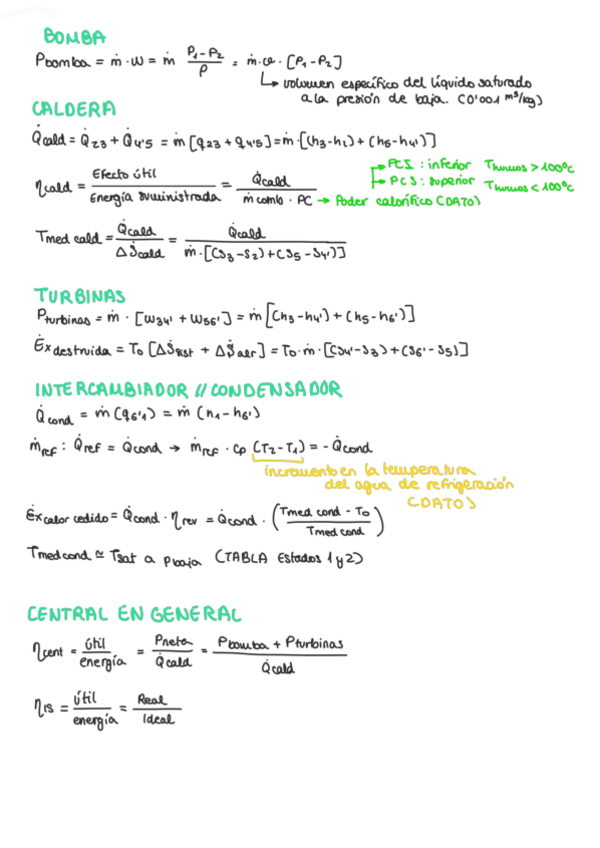 BOMBA
Pbomba = ṁ · W = ṁ (P1-P2)/ρ = ṁ·v · [P1-P2]
↳ volumen específico del líquido saturado
a la presión de baja. (0'001 m³/kg)
CALDERA
Q̇cald = Q̇23 + Q̇4'5 = ṁ[q23 + q4'5] = ṁ·[(h3-h2) + (h5-h4')]
ηcald = Efecto útil / Energía suministrada = Q̇cald / ṁcomb · PC → Poder calorífico (DATO)
PCI : inferior Thumos > 100ºC
PCS : superior Thumos < 100ºC
Tmed cald = Q̇cald / ΔṠcald = Q̇cald / ṁ·[(S3-S2) + (S5-S4')]
TURBINAS
Pturbinas = ṁ · [W34' + W56'] = ṁ[(h3-h4') + (h5-h6')]
Ėx destruida = T0 [ΔṠsist + ΔṠalr] = T0·ṁ·[(S4'-S3) + (S6'-S5)]
INTERCAMBIADOR // CONDENSADOR
Q̇cond = ṁ(q6'1) = ṁ (h1-h6')
ṁref : Q̇ref = Q̇cond → ṁref · cp (T2-T1) = -Q̇cond
incremento en la temperatura
del agua de refrigeración
(DATO)
Ėxcalor cedido = Q̇cond · ηrev = Q̇cond · (Tmed cond - T0 / Tmed cond)
Tmed cond ≃ Tsat a pbaja (TABLA Estados 1 y 2)
CENTRAL EN GENERAL
ηcent = útil / energía = Pneta / Q̇cald = Pbomba + Pturbinas / Q̇cald
ηIS = útil / energía = Real / Ideal